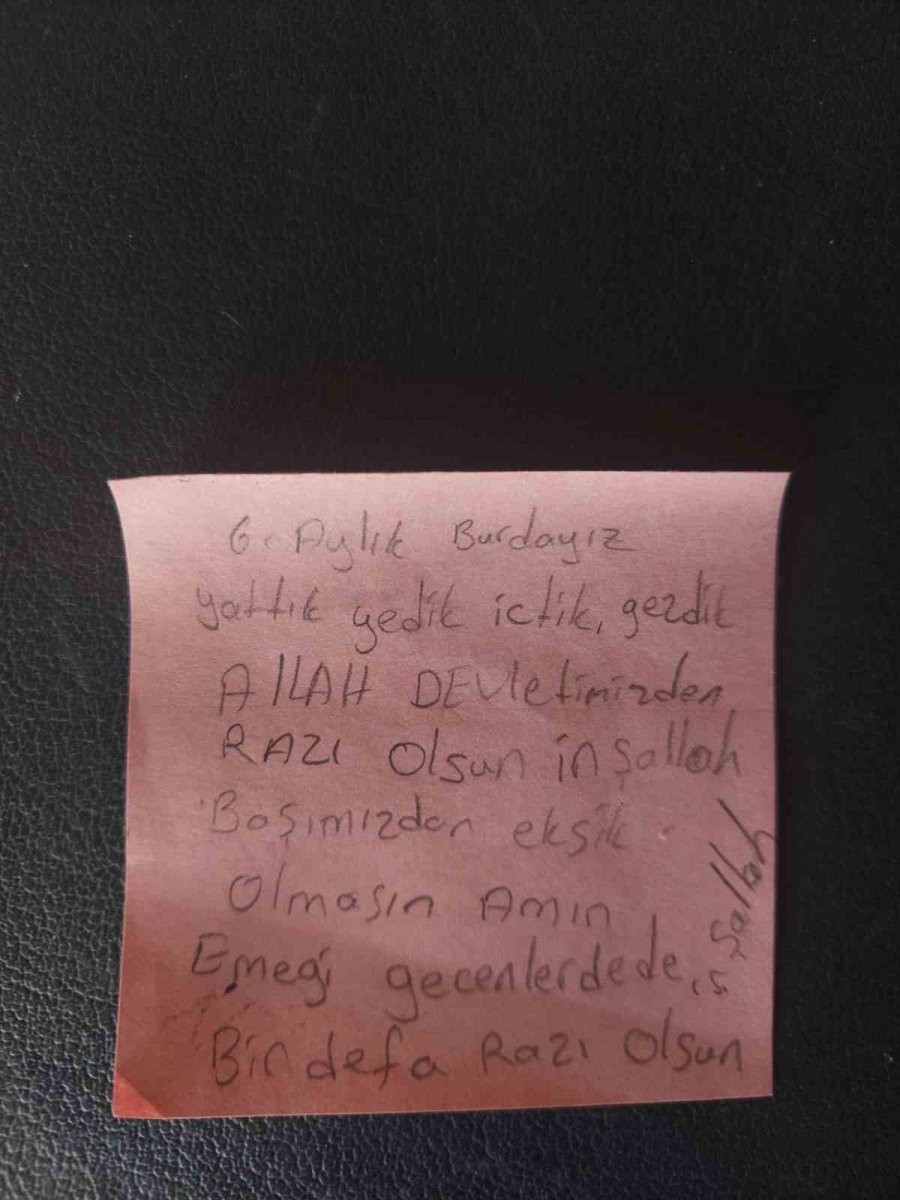 6. Aylık Burdayız
yattık yedik ictik, gezdik
AllAH DEVletimizden
RAZI Olsun inşallah
Başımızdan ekşik
Olmaşın Amın
Emeği gecenlerdede, inşallah
Bin defa Razı Olsun